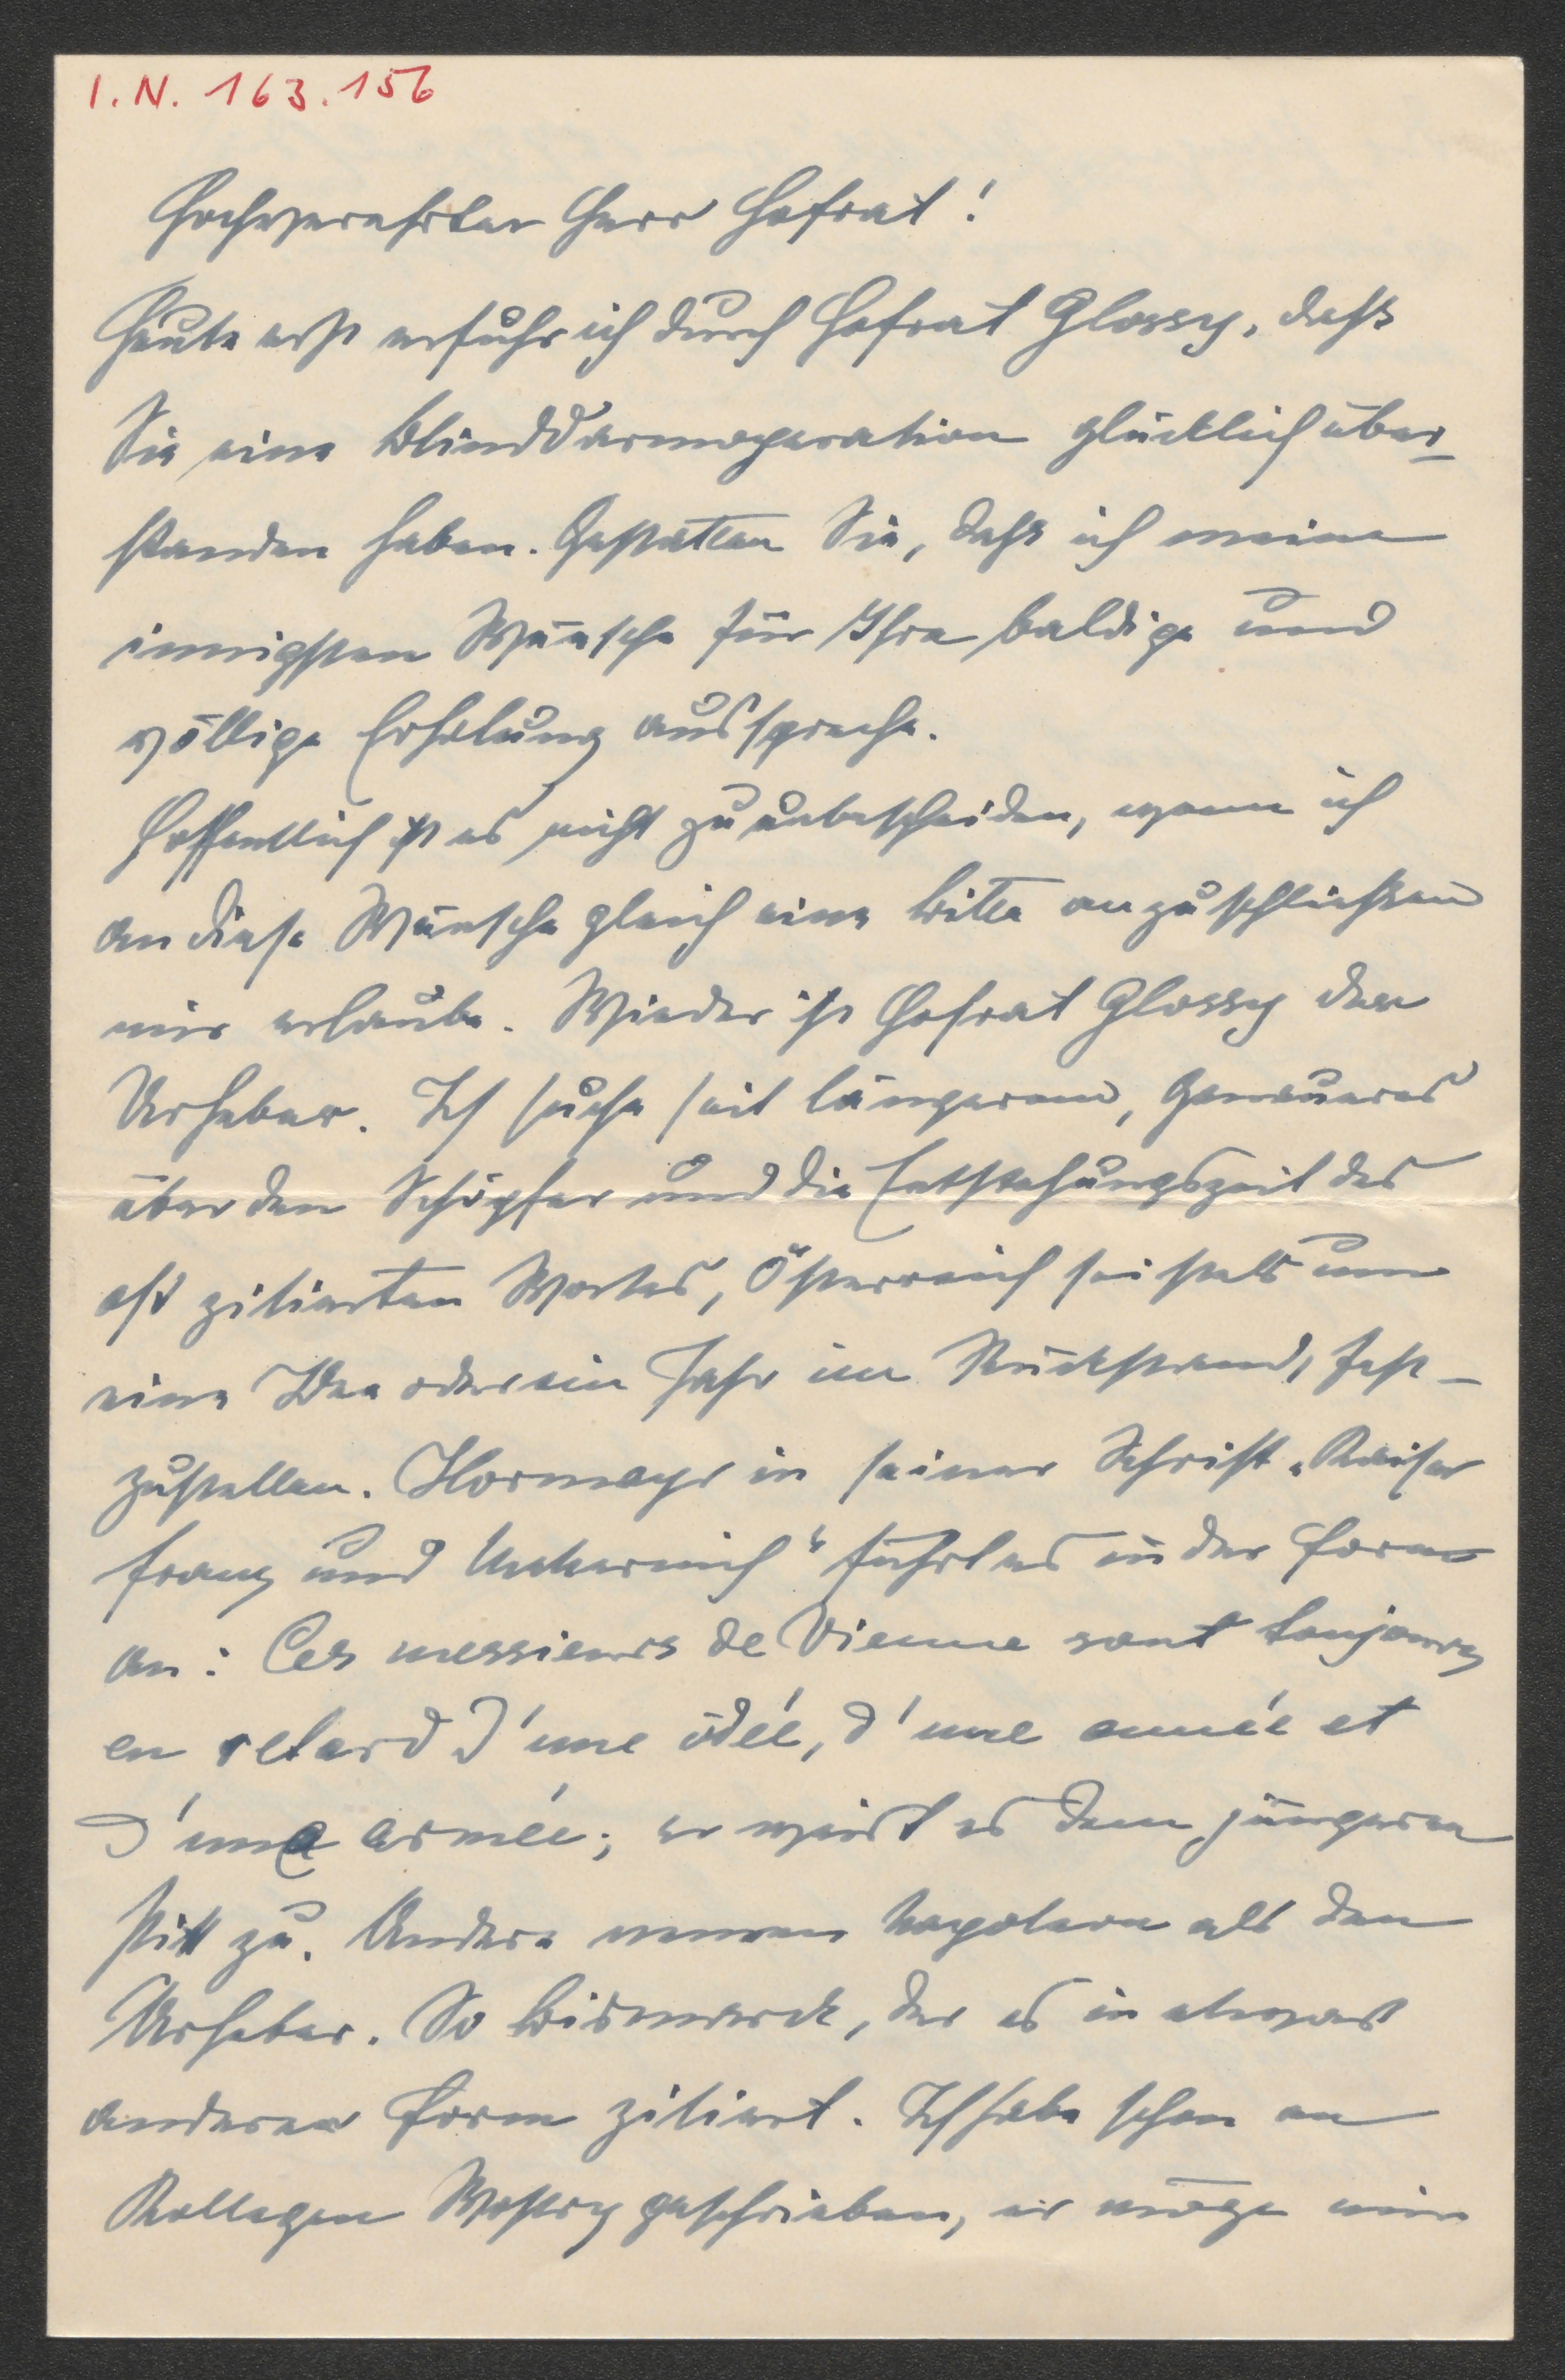 I.N. 163.156
Hochverehrter Herr Hofrat!
Heute erst erfuhr ich durch Hofrat Glossy, daß
Sie eine Blinddarmoperation glücklich über-
standen haben. Gestatten Sie, daß ich meine
innigsten Wünsche für Ihre baldige und
völlige Erholung ausspreche.
Hoffentlich ist es nicht zu unbescheiden, wenn ich
an diese Wünsche gleich eine Bitte anzuschließen
mir erlaube. Wieder ist Hofrat Glossy der
Urheber. Ich suche seit längerem, Genaueres
über den Schöpfer und die Entstehungszeit des
oft zitierten Wortes, Österreich sei stets um
eine Idee oder ein Jahr im Rückstand, fest-
zustellen. Hormayr in seiner Schrift „Kaiser
Franz und Metternich“ führt es in der Form
an: Ces messieurs de Vienne sont toujours
en retard d'une idée, d'une année et
d'une armée; er weist es dem jüngeren
Pitt zu. Andere nennen Napoleon als den
Urheber. So Bismarck, der es in etwas
anderer Form zitiert. Ich habe schon an
Kollegen Wostry geschrieben, er möge mir